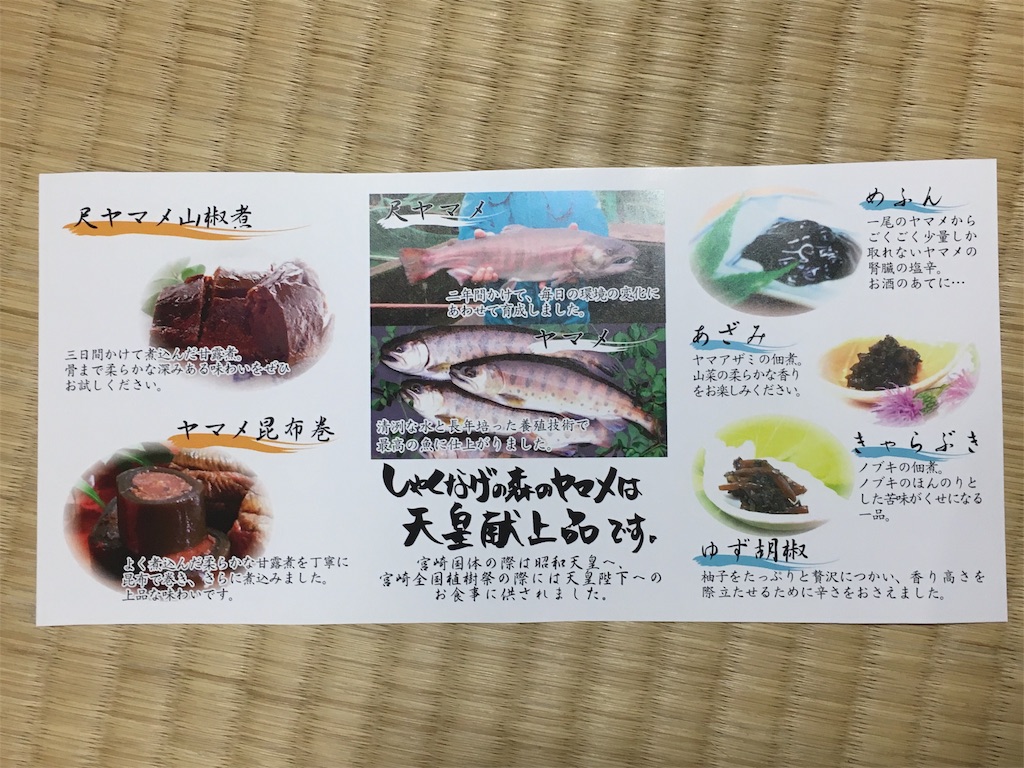 尺ヤマメ山椒煮
三日間かけて煮込んだ甘露煮。
骨まで柔らかな深みある味わいをぜひ
お試しください。
ヤマメ昆布巻
よく煮込んだ柔らかな甘露煮を丁寧に
昆布で巻き、さらに煮込みました。
上品な味わいです。
尺ヤマメ
二年間かけて、毎日の環境の変化に
あわせて育成しました。
ヤマメ
清冽な水と長年培った養殖技術で
最高の魚に仕上がりました。
しゃくなげの森のヤマメは
天皇献上品です。
宮崎国体の際は昭和天皇へ、
宮崎全国植樹祭の際には天皇陛下への
お食事に供されました。
めふん
一尾のヤマメから
ごくごく少量しか
取れないヤマメの
腎臓の塩辛。
お酒のあてに…
あざみ
ヤマアザミの佃煮。
山菜の柔らかな香り
をお楽しみください。
きゃらぶき
ノブキの佃煮。
ノブキのほんのりと
した苦味がくせになる
一品。
ゆず胡椒
柚子をたっぷりと贅沢につかい、香り高さを
際立たせるために辛さをおさえました。